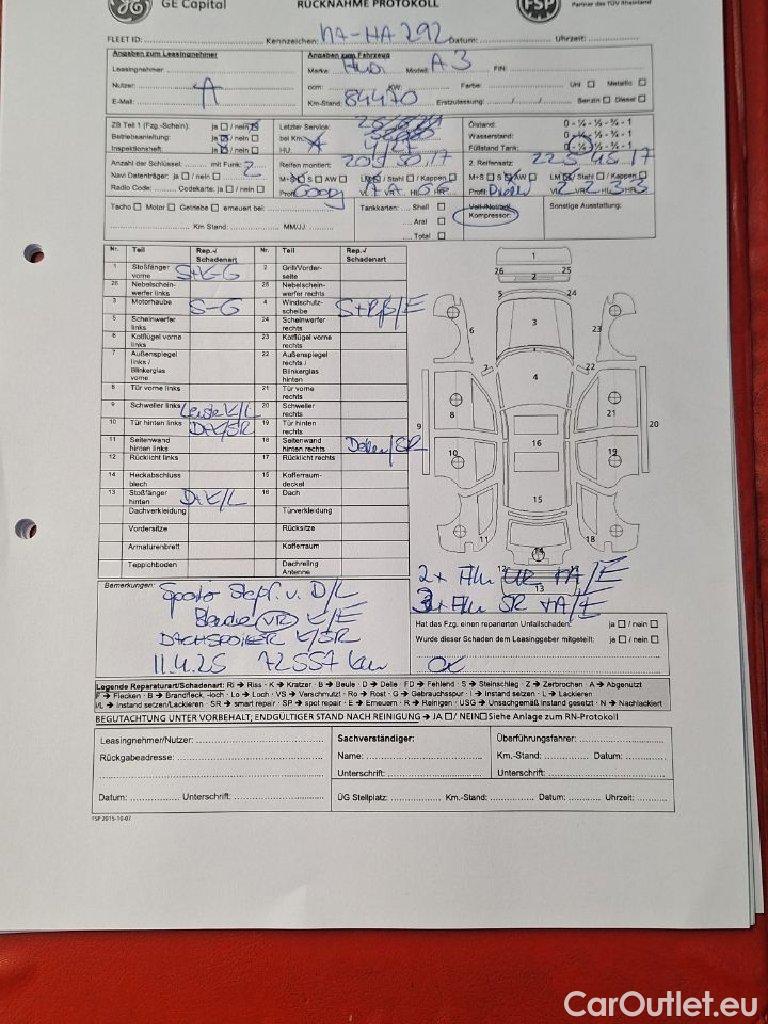 GE Capital
RÜCKNAHME PROTOKOLL
FSP
Partner des TÜV Rheinland
FLEET ID: Kennzeichen: NA-HA 292 Datum: Uhrzeit:
Angaben zum Leasingnehmer
Angaben zum Fahrzeug
Leasingnehmer:
Marke: Audi Modell: A3 FIN:
Nutzer: A
ccm: KW: Farbe: Uni Metallic
E-Mail:
Km-Stand: 84470 Erstzulassung: Benzin Diesel
ZB Teil 1 (Fzg.-Schein): ja / nein
Letzter Service:
Ölstand: 0 - ¼ - ½ - ¾ - 1
Betriebsanleitung: ja / nein
bei Km:
Wasserstand: 0 - ¼ - ½ - ¾ - 1
Inspektionsheft: ja / nein
HU:
Füllstand Tank: 0 - ¼ - ½ - ¾ - 1
Anzahl der Schlüssel: mit Funk: 2
Reifen montiert: 205 50 17
2. Reifensatz: 225 45 17
Navi Datenträger: ja / nein
M+S S AW
LM / Stahl / Kappen
M+S S AW
LM / Stahl / Kappen
Radio Code: Codekarte: ja / nein
Profil
Profil: VL 2 VR 2 HL 3 HR 3
Tacho Motor Getriebe erneuert bei:
Tankkarten: Shell
Kompressor:
Sonstige Ausstattung:
Aral
Km Stand: MM/JJ
Total
Nr. Teil Rep.-/ Schadenart Nr. Teil Rep.-/ Schadenart
1 Stoßfänger vorne S+K-G 2 Grill/Vorderseite
26 Nebelscheinwerfer links 25 Nebelscheinwerfer rechts
3 Motorhaube S-G 4 Windschutzscheibe
5 Scheinwerfer links 24 Scheinwerfer rechts
6 Kotflügel vorne links 23 Kotflügel vorne rechts
7 Außenspiegel links / Blinkerglas vorne 22 Außenspiegel rechts / Blinkerglas hinten
8 Tür vorne links 21 Tür vorne rechts
9 Schweller links Leiste K/L 20 Schweller rechts
10 Tür hinten links 19 Tür hinten rechts
11 Seitenwand hinten links 18 Seitenwand hinten rechts
12 Rücklicht links 17 Rücklicht rechts
14 Heckabschlussblech 15 Kofferraumdeckel
13 Stoßfänger hinten 16 Dach
Dachverkleidung Türverkleidung
Vordersitze Rücksitze
Armaturenbrett Kofferraum
Teppichboden Dachreling Antenne
1
26 25
2
5 24
3
6 23
7 22
4
8 21
9 20
16
10 19
15
11 18
14
12
13
Bemerkungen:
Blende VR K/E
DACHSPOILER K/SR
11.4.25 72557 km
Hat das Fzg. einen reparierten Unfallschaden: ja / nein
Wurde dieser Schaden dem Leasinggeber mitgeteilt: ja / nein
OK
Legende Reparaturart/Schadenart: Ri → Riss · K → Kratzer · B → Beule · D → Delle · FD → Fehlend · S → Steinschlag · Z → Zerbrochen · A → Abgenutzt
F → Flecken · B → Brandfleck, -loch · Lo → Loch · VS → Verschmutzt · Ro → Rost · G → Gebrauchsspur · I → Instand setzen · L → Lackieren
I/L → Instand setzen/Lackieren · SR → smart repair · SP → spot repair · E → Erneuern · R → Reinigen · USG → Unsachgemäß instand gesetzt · N → Nachlackiert
BEGUTACHTUNG UNTER VORBEHALT; ENDGÜLTIGER STAND NACH REINIGUNG → JA / NEIN Siehe Anlage zum RN-Protokoll
Leasingnehmer/Nutzer:
Sachverständiger:
Überführungsfahrer:
Rückgabeadresse:
Name:
Km.-Stand: Datum:
Unterschrift:
Unterschrift:
Datum: Unterschrift:
ÜG Stellplatz: Km.-Stand: Datum: Uhrzeit:
FSP 2015-10-07
CarOutlet.eu